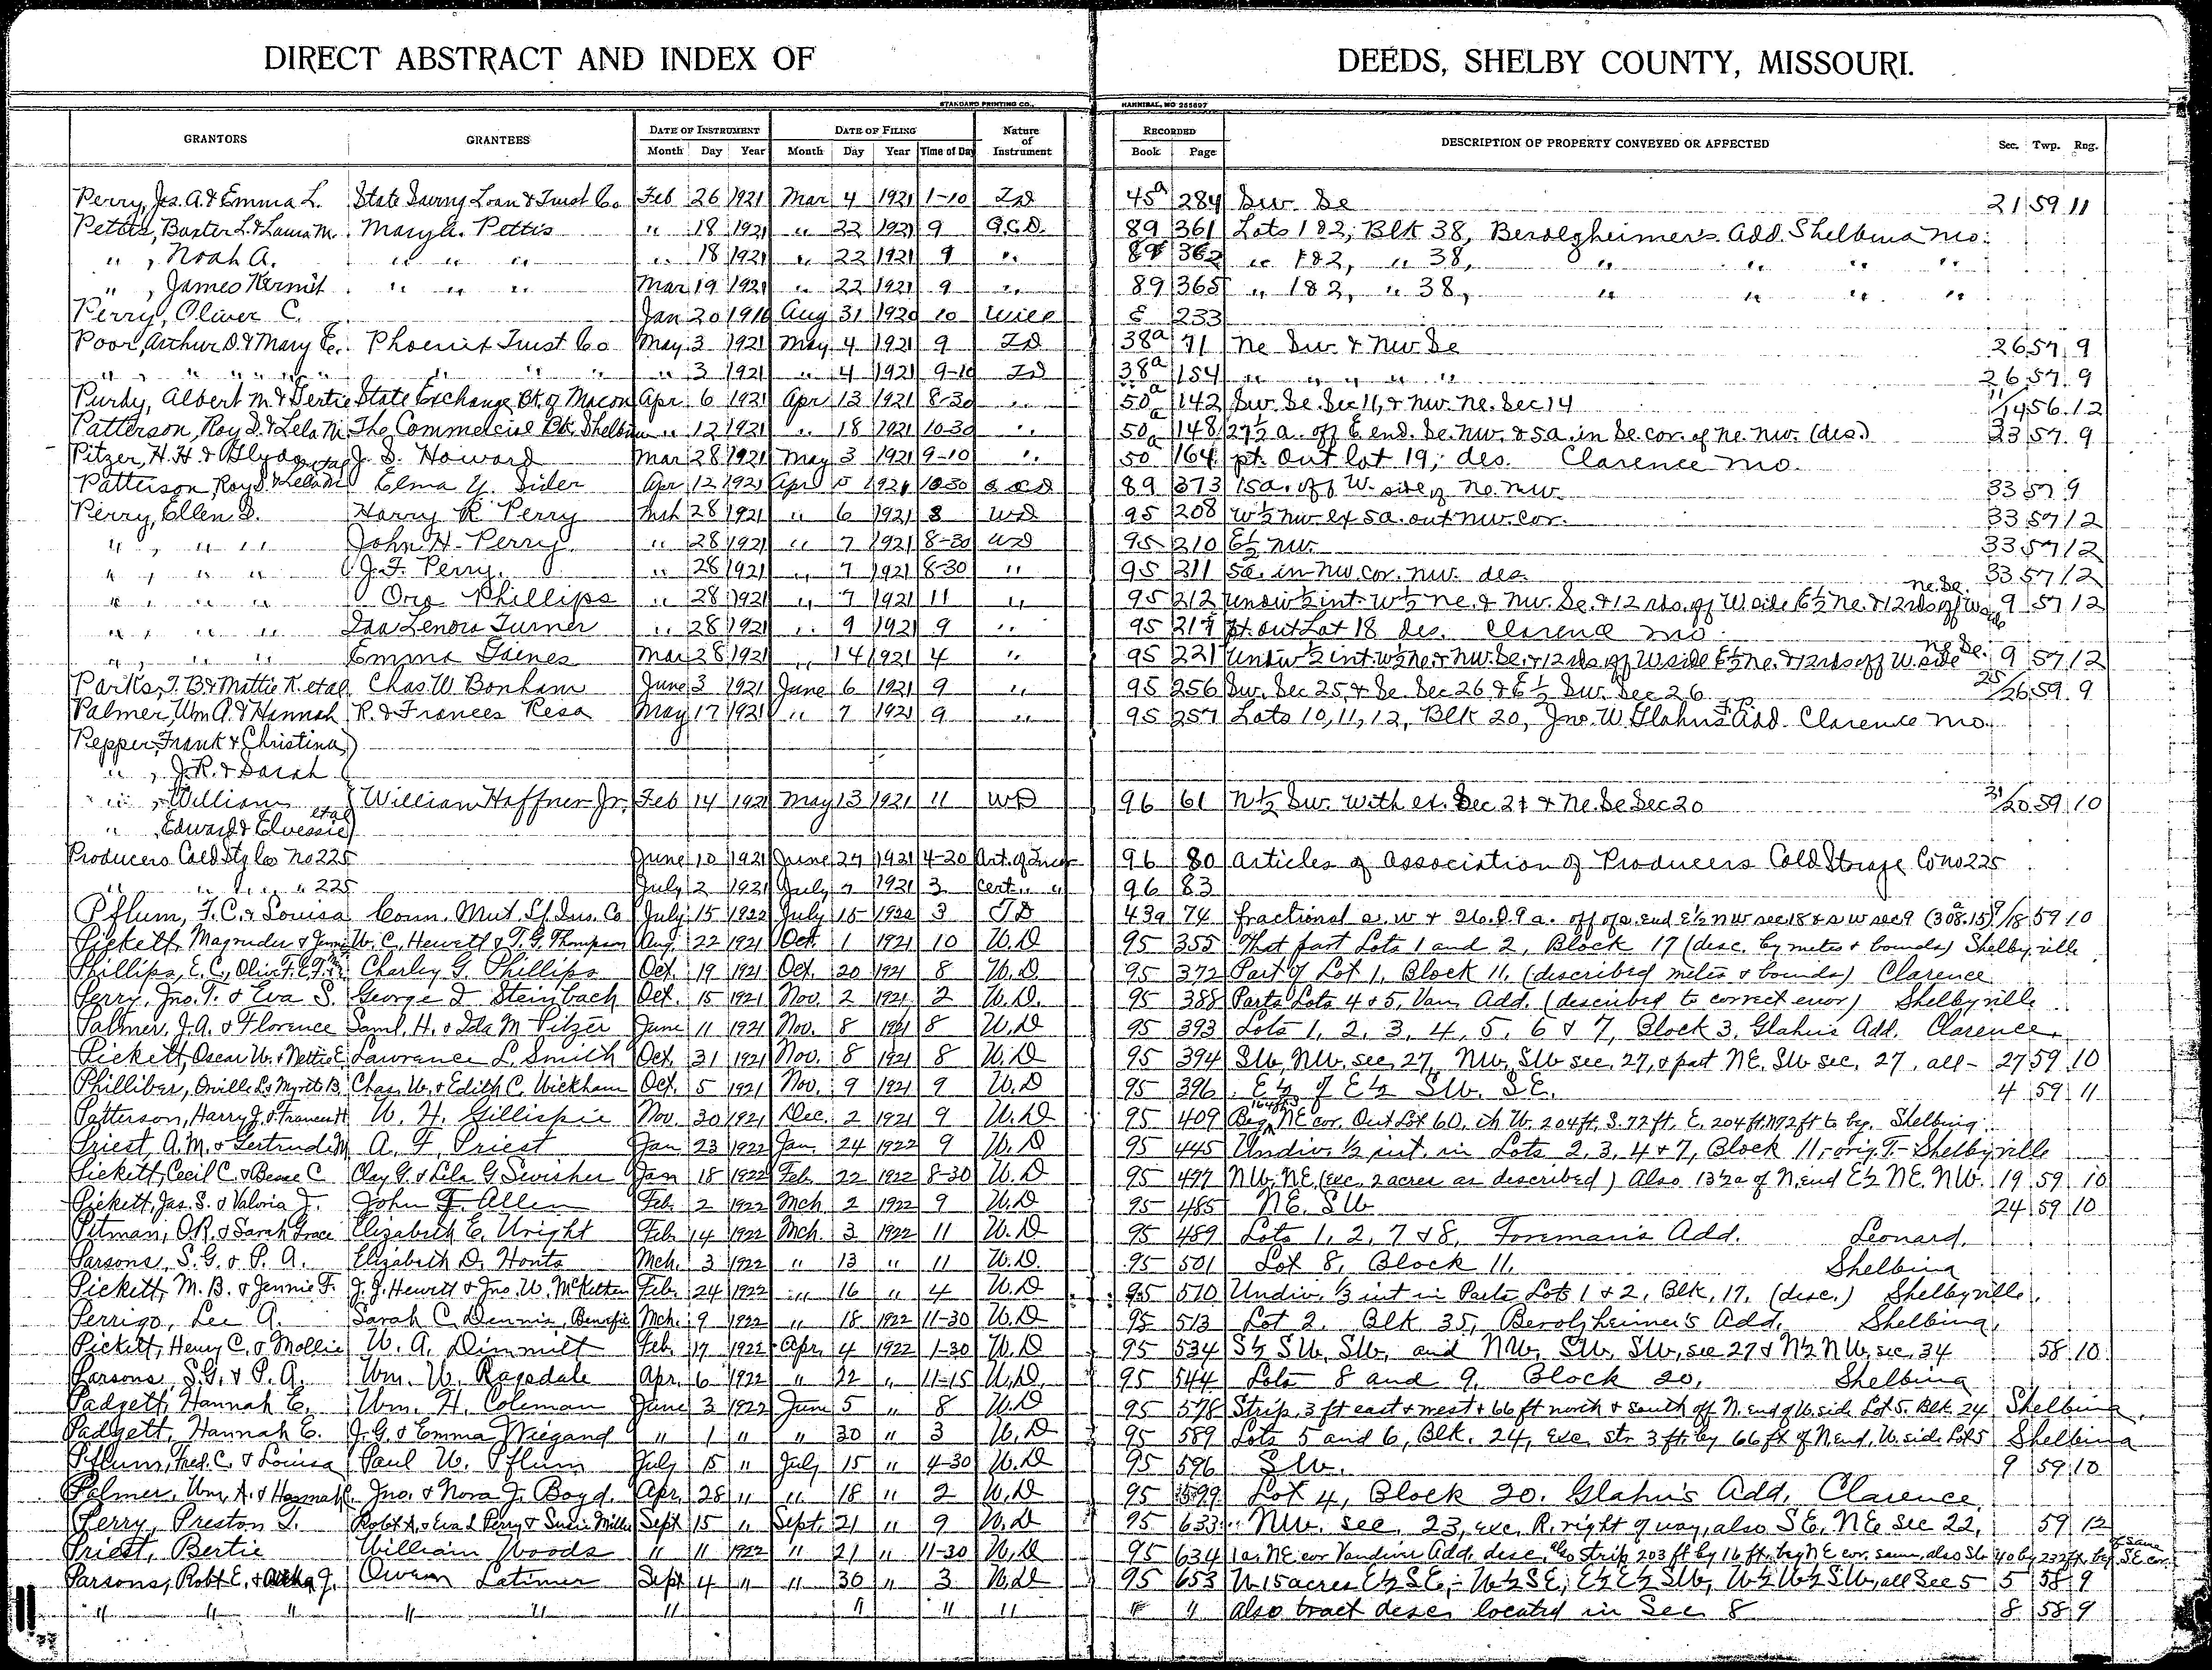 DIRECT ABSTRACT AND INDEX OF DEEDS, SHELBY COUNTY, MISSOURI.
STANDARD PRINTING CO., HANNIBAL, MO 255697
GRANTORS GRANTEES DATE OF INSTRUMENT DATE OF FILING Nature of Instrument RECORDED DESCRIPTION OF PROPERTY CONVEYED OR AFFECTED Sec. Twp. Rng.
Month Day Year Month Day Year Time of Day Book Page
Perry, Jas. A. & Emma L. State Saving Loan & Trust Co Feb 26 1921 Mar 4 1921 1-10 TD 45a 284 Sw. Se 21 59 11
Pettis, Baxter L. & Laura M. Mary A. Pettis " 18 1921 " 22 1921 9 Q.C.D. 89 361 Lots 1 & 2, Blk 38, Berolzheimer's Add. Shelbina Mo.
" , Noah A. " " " " 18 1921 " 22 1921 9 " 89 362 " 1 & 2, " 38, " " " "
" , James Kermit " " " Mar 19 1921 " 22 1921 9 " 89 365 " 1 & 2, " 38, " " " "
Perry, Oliver C. Jan 20 1916 Aug 31 1920 10 Will E 233
Poor, Arthur D. & Mary E. Phoenix Trust Co May 3 1921 May 4 1921 9 TD 38a 71 Ne Sw. & Nw Se 26 57 9
" , " " " " " " " " 3 1921 " 4 1921 9-10 TD 38a 154 " " " " " 26 57 9
Purdy, Albert M. & Gertie State Exchange Bk. of Macon Apr 6 1921 Apr 13 1921 8-30 " 50a 142 Sw. Se. Sec 11, & Nw. Ne. Sec 14 11/14 56 12
Patterson, Roy S. & Lela M. The Commercial Bk. Shelbina " 12 1921 " 18 1921 10-30 " 50a 148 27½ a. off E end. Se. Nw. & 5a. in Se cor. of Ne. Nw. (des.) 33 57 9
Pitzer, H. H. & Glyda et al J. S. Howard Mar 28 1921 May 3 1921 9-10 " 50a 164 pt. Out lot 19, des. Clarence Mo.
Patterson, Roy S. & Lela M Elma Y. Sider Apr 12 1921 Apr 15 1921 10-30 Q C D 89 373 15a. off W. side of Ne. Nw. 33 57 9
Perry, Ellen D. Harry R. Perry Mch 28 1921 " 6 1921 8 WD 95 208 W½ Nw ex 5a. out Nw. cor. 33 57 12
" , " " John H. Perry " 28 1921 " 7 1921 8-30 WD 95 210 E½ Nw. 33 57 12
" , " " J. F. Perry. " 28 1921 " 7 1921 8-30 " 95 211 5a. in Nw cor. Nw. des. 33 57 12
" , " " Ora Phillips " 28 1921 " 7 1921 11 " 95 212 Undiv ½ int. W½ Ne. & Nw. Se. & 12 rds. off W side E½ Ne. & 12 rds off W side Ne. Se. 9 57 12
" , " " Ida Lenora Turner " 28 1921 " 9 1921 9 " 95 217 pt. out Lot 18 des. Clarence Mo
" , " " Emma Gaines Mar 28 1921 " 14 1921 4 " 95 221 Undiv ½ int. W½ Ne & Nw. Se. & 12 rds off W side E½ Ne. & 12 rds off W. side Ne Se. 9 57 12
Parks, T. B. & Mattie K. et al Chas. W. Bonham June 3 1921 June 6 1921 9 " 95 256 Sw. Sec 25 & Se. Sec 26 & E½ Sw. Sec 26 25/26 59 9
Palmer, Wm A. & Hannah R. & Frances Resa May 17 1921 " 7 1921 9 " 95 257 Lots 10, 11, 12, Blk 20, Jno. W. Glahn's Add. Clarence Mo.
Pepper, Frank & Christina
" , J. R. & Sarah
" , William William Haffner Jr. Feb 14 1921 May 13 1921 11 WD 96 61 N½ Sw. with ex. Sec 21 & Ne. Se Sec 20 21/20 59 10
" , Edward & Elvessie et al
Producers Cold Stg Co No 225 June 10 1921 June 27 1921 4-20 Art. of Incor 96 80 Articles of Association of Producers Cold Storage Co No 225
" " " " " 225 July 2 1921 July 7 1921 3 Cert " " 96 83
Pflum, F. C. & Louisa Conn. Mut Lf. Ins. Co July 15 1922 July 15 1922 3 T D 43a 74 fractional s. w & 26.09 a. off of s. end E½ N W sec 18 & s w sec 9 (308.15)a 9/18 59 10
Pickett, Magruder & Jennie W. C. Hewett & T. G. Thompson Aug. 22 1921 Oct. 1 1921 10 W. D 95 355 That part Lots 1 and 2, Block 17 (desc. by metes & bounds) Shelbyville
Phillips, E. C., Olive F. Charley G. Phillips Oct. 19 1921 Oct. 20 1921 8 W. D. 95 372 Part of Lot 1, Block 11, (described metes & bounds) Clarence
Perry, Jno. T. & Eva S. George I Steinbach Oct. 15 1921 Nov. 2 1921 2 W. D. 95 388 Parts Lots 4 & 5, Van. Add. (described to correct error) Shelbyville
Palmer, J. A. & Florence Saml. H. & Ida M Pitzer June 11 1921 Nov. 8 1921 8 W. D 95 393 Lots 1, 2, 3, 4, 5, 6 & 7, Block 3, Glahn's Add. Clarence.
Pickett, Oscar W. & Nettie E. Lawrance L. Smith Oct. 31 1921 Nov. 8 1921 8 W. D 95 394 SW, NW. sec 27, NW, SW sec. 27, & part NE. SW sec. 27, all - 27 59 10
Philliber, Orville L. & Myrtle B. Chas. W. & Edith C. Wickham Oct. 5 1921 Nov. 9 1921 9 W. D 95 396 E½ of E½ SW. SE. 4 59 11
Patterson, Harry J. & Frances H W. H. Gillispie Nov. 30 1921 Dec. 2 1921 9 W. D 95 409 Beg. 164ft S NE cor. Out Lot 60, th W. 204ft, S. 72 ft, E. 204 ft. N 72 ft to beg. Shelbina.
Priest, A. M. & Gertrude M A. F. Priest Jan 23 1922 Jan. 24 1922 9 W. D 95 445 Undiv. ½ int. in Lots 2, 3, 4 & 7, Block 11, - orig. T. - Shelbyville
Pickett, Cecil C. & Besse C Clay G. & Lela G. Swisher Jan 18 1922 Feb. 22 1922 8-30 W. D 95 477 NW. NE. (exc. 2 acres as described) Also 13½ a of N. end E½ NE. NW. 19 59 10
Pickett, Jas. S. & Valoria J. John F. Allen Feb. 2 1922 Mch. 2 1922 9 W. D 95 485 NE. SW 24 59 10
Pitman, O. R. & Sarah Grace Elizabeth E. Wright Feb. 14 1922 Mch. 3 1922 11 W. D 95 489 Lots 1, 2, 7 & 8, Foreman's Add. Leonard.
Parsons, S. G. & P. A. Elizabeth D. Honts Mch. 3 1922 " 13 " 11 W. D. 95 501 Lot 8, Block 11. Shelbina
Pickett, M. B. & Jennie F. J. J. Hewett & Jno. W. McKetten Feb. 24 1922 " 16 " 4 W. D 95 510 Undiv. ⅓ int in Parts Lots 1 & 2, Blk. 17, (desc.) Shelbyville.
Perrigo, Lee A. Sarah C. Dennis, Benefic Mch. 9 1922 " 18 1922 11-30 W. D 95 513 Lot 2. Blk. 35, Berolzheimer's Add. Shelbina.
Pickett, Henry C. & Mollie W. A. Dimmitt Feb. 17 1922 Apr. 4 1922 1-30 W. D 95 534 S½ SW, SW, and NW. SW. SW, sec 27 & N½ NW, sec. 34 58 10
Parsons, S. G. & P. A. Wm. W. Ragsdale Apr. 6 1922 " 22 " 11-15 W. D. 95 544 Lots 8 and 9, Block 20, Shelbina
Padgett, Hannah E. Wm. H. Coleman June 3 1922 June 5 " 8 W. D 95 578 Strip 3 ft east & west & 66 ft north & south off N. end of W. side Lot 5. Blk. 24 Shelbina.
Padgett, Hannah E. J. G. & Emma Wiegand " 1 " " 30 " 3 W. D 95 589 Lots 5 and 6, Blk. 24, exc. str. 3 ft. by 66 ft of N. end, W. side Lot 5 Shelbina
Pflum, Fred. C. & Louisa Paul W. Pflum July 15 " July 15 " 4-30 W. D 95 596 SW. 9 59 10
Palmer, Wm. A. & Hannah Jno. & Nora J. Boyd. Apr. 28 " " 18 " 2 W. D 95 599 Lot 4, Block 20. Glahn's Add. Clarence.
Perry, Preston T. Robt A. & Eva L Perry & Susie Miller Sept 15 " Sept. 21 " 9 W. D 95 633 NW. sec. 23, exc. R. right of way, also SE. NE sec 22, 59 12
Priest, Bertie William Woods " 11 1922 " 21 " 11-30 W. D 95 634 1a. NE cor Vandiver Add. desc. also strip 203 ft by 16 ft. beg NE cor. same, also Str 40 by 232 ft. beg SE. cor. of same
Parsons, Robt E. & J. Owen Latimer Sept 4 " " 30 " 3 W. D 95 653 W 15 acres E½ SE, - W½ SE, E½ E½ SW, W½ W½ SW, all Sec 5 5 58 9
" " " " " " " " " " " also tract desc. located in Sec. 8 8 58 9